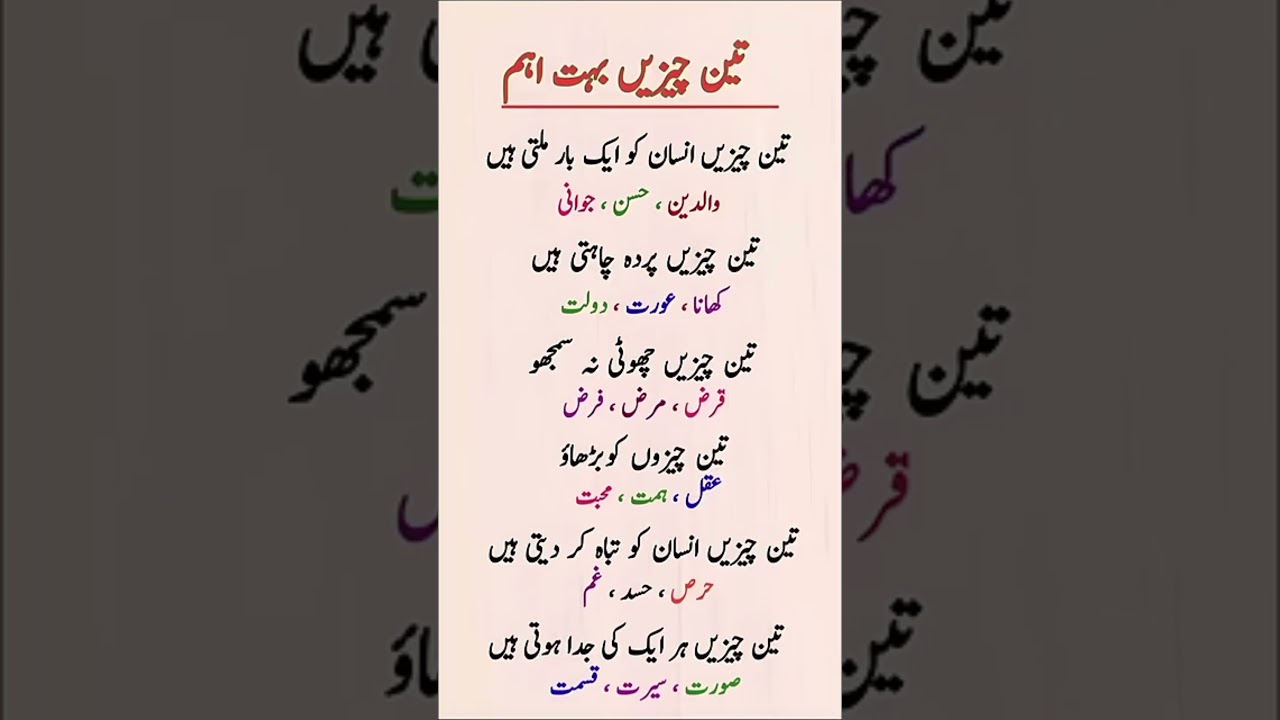 تین چیزیں بہت اہم
تین چیزیں انسان کو ایک بار ملتی ہیں
والدین ، حسن ، جوانی
تین چیزیں پردہ چاہتی ہیں
کھانا ، عورت ، دولت
تین چیزیں چھوٹی نہ سمجھو
قرض ، مرض ، فرض
تین چیزوں کو بڑھاؤ
عقل ، ہمت ، محبت
تین چیزیں انسان کو تباہ کر دیتی ہیں
حرص ، حسد ، غم
تین چیزیں ہر ایک کی جدا ہوتی ہیں
صورت ، سیرت ، قسمت